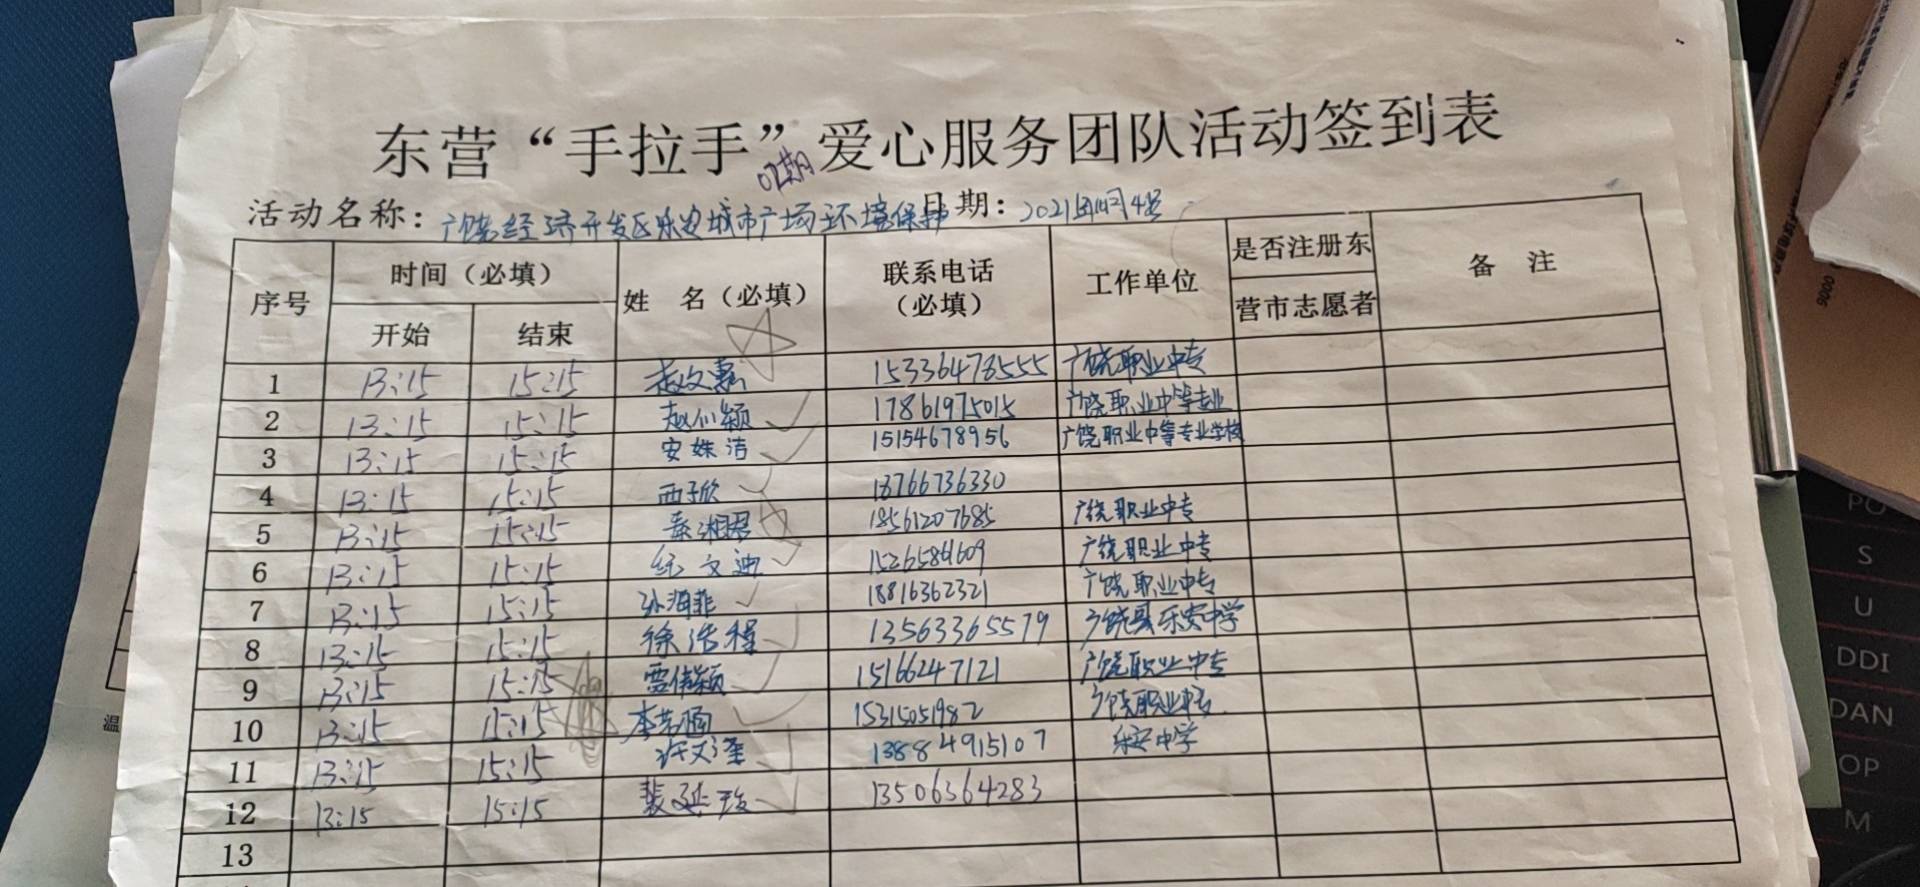 东营“手拉手”爱心服务团队活动签到表
02期
活动名称：广饶经济开发区乐安城市广场环境保护 日期：2021
序号 时间（必填） 姓 名（必填） 联系电话（必填） 工作单位 是否注册东营市志愿者 备 注
开始 结束
1 13:15 15:15 赵文嘉 15336478555 广饶职业中专
2 13:15 15:15 赵仙颖 17861975015 广饶职业中等专业
3 13:15 15:15 安姝洁 15154678956 广饶职业中等专业学校
4 13:15 15:15 西子欣 18766736330
5 13:15 15:15 湘君 18561207685 广饶职业中专
6 13:15 15:15 纪文迪 15265861609 广饶职业中专
7 13:15 15:15 孙海菲 18816362321 广饶职业中专
8 13:15 15:15 徐浩程 13563365579 广饶县乐安中学
9 13:15 15:15 贾倩颖 15166247121 广饶职业中专
10 13:15 15:15 李艺涵 15315051982 广饶职业中专
11 13:15 15:15 许文泽 13884915107 乐安中学
12 13:15 15:15 裴延 13506364283
13
温
0006
PO
S
U
DDI
DAN
OP
M